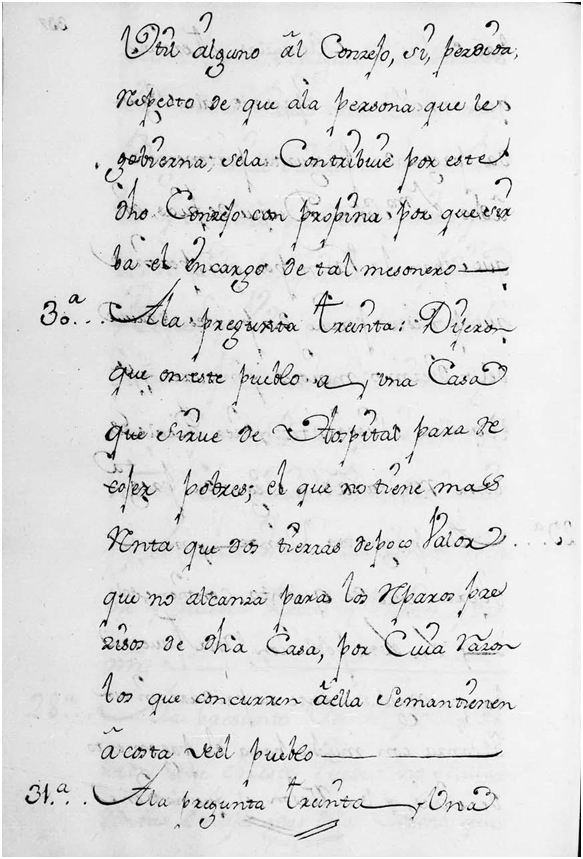 Util alguno âl Conzejo, si, perdida,
Respecto de que ala persona que le
govierna, sela Contribuie por este
dho Conzejo con propina por que sir
ba el encargo de tal mesonero
30.ª.. Ala pregunta treinta: Dijeron
que en este pueblo a una Casa
que sirue de Hospital para Re
cojer pobres; el que no tiene mass
Renta que dos tierras de poco Valor
que no alcanza para los Reparos pre
zisos de dha Casa, por Cuia Razon
los que concurren âella Semantienen
â costa del pueblo
31.ª.. Ala pregunta treinta y Una